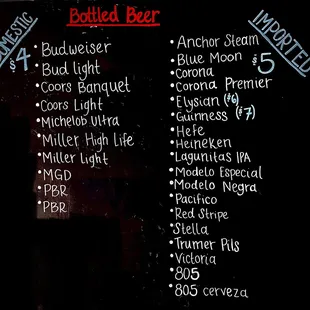 Bottled Beer
DOMESTIC
$4
Budweiser
Bud light
Coors Banquet
Coors Light
Michelob Ultra
Miller High Life
Miller Light
MGD
PBR
PBR
IMPORTED
$5
Anchor Steam
Blue Moon
Corona
Corona Premier
Elysian ($6)
Guinness ($7)
Hefe
Heineken
Lagunitas IPA
Modelo Especial
Modelo Negra
Pacifico
Red Stripe
Stella
Trumer Pils
Victoria
805
805 cerveza